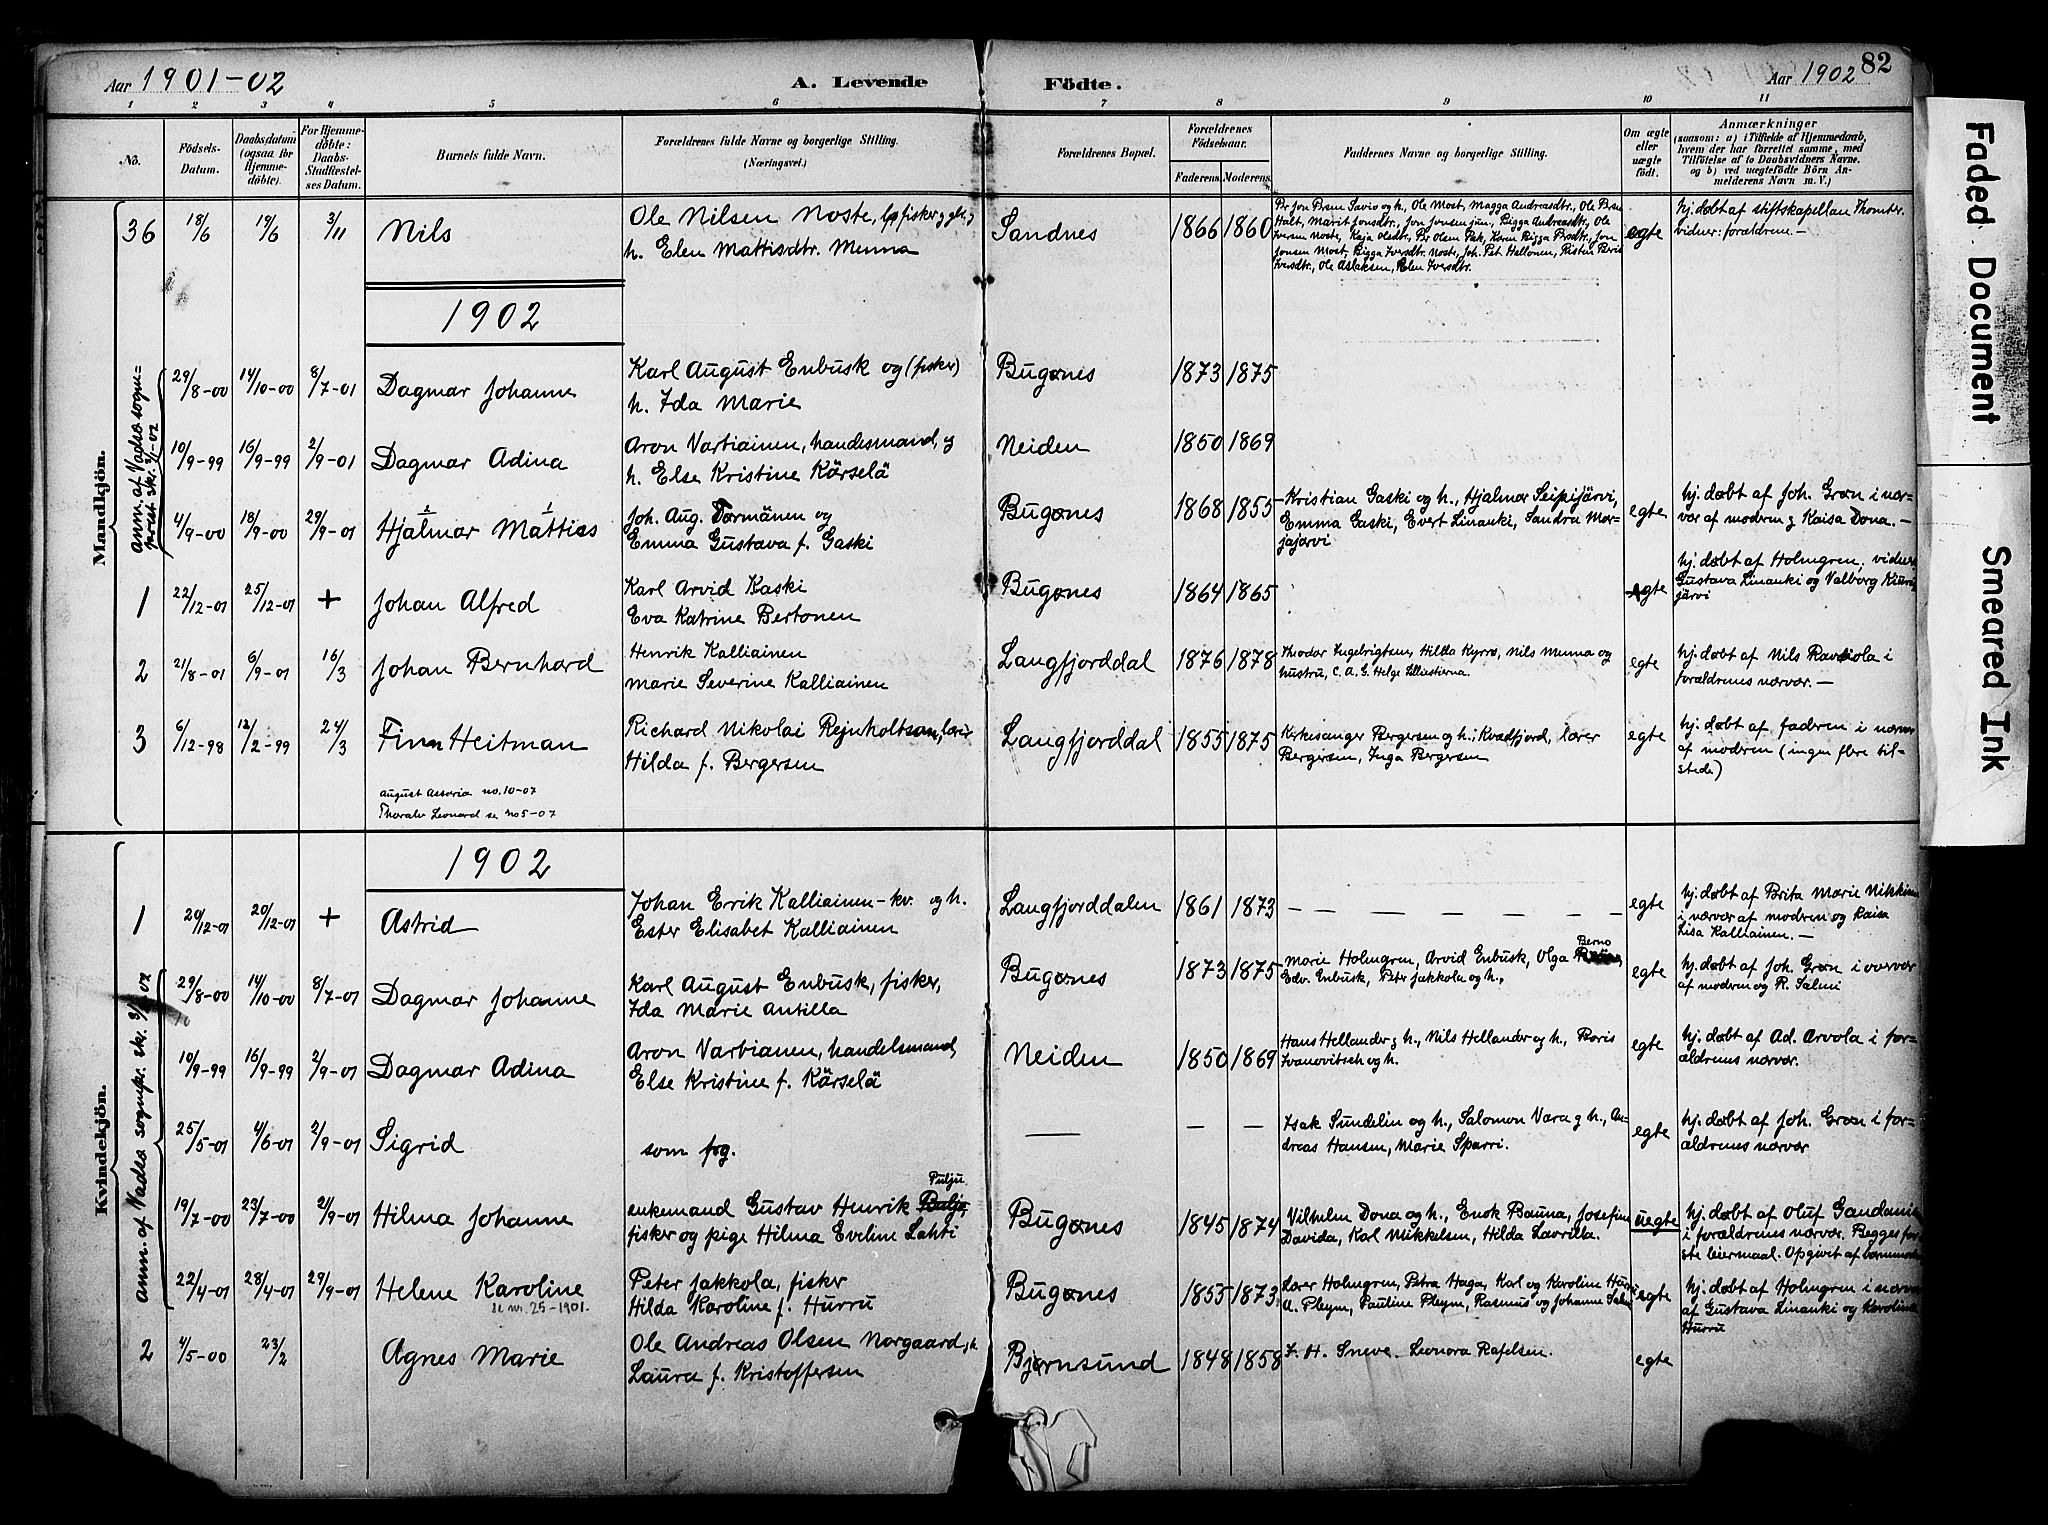 Aar 1901-02
A. Levende
Födte.
Aar 1902
82
1 2 3 4 5 6 7 8 9 10 11
No.
Födsels-Datum.
Daabsdatum (ogsaa for Hjemmedöbte).
For Hjemmedöbte: Daabs-Stadfæstelses Datum.
Barnets fulde Navn.
Forældrenes fulde Navne og borgerlige Stilling.
(Næringsvei.)
Forældrenes Bopæl.
Forældrenes Födselsaar.
Faderens. Moderens.
Faddernes Navne og borgerlige Stilling.
Om ægte eller uægte födt.
Anmærkninger
(saasom: a) i Tilfælde af Hjemmedaab, hvem der har forrettet samme, med Tilföielse af to Daabsvidners Navne. og b) ved uægtefödte Börn Anmelderens Navn m. V.)
Mandkjön.
36 18/6 19/6 3/11 Nils
Ole Nilsen Noste, fisker
h. Elen Mattisdtr. Menna
Sandnes 1866 1860
egte
hj. døbt af stiftskapellan Thomter.
vidner: forældrene. -
1902
anm. af Vadsø sogne=
29/8-00 14/10-00 8/7-01 Dagmar Johanne
Karl August Enbusk og (fisker)
h. Ida Marie
Bugønes 1873 1875
10/9-99 16/9-99 2/9-01 Dagmar Adina
Aron Vartiainen, handesmand, og
h. Else Kristine Kärselä
Neiden 1850 1869
4/9-00 18/9-00 29/9-01 Hjalmar Mattias
Joh. Aug. Tormänen og
Emma Gustava f. Gaski
Bugønes 1868 1855
Kristian Gaski og h., Hjalmar Seipijärvi,
Emma Gaski, Evert Linanki, Sandra Mar-
jajarvi
egte
hj. døbt af Joh. Grøn i nær-
vær af modern og Kaisa Dona. -
1 22/12-01 25/12-01 + Johan Alfred
Karl Arvid Kaski
Eva Katrine Bertonen
Bugønes 1864 1865
egte
hj. døbt af Holmgren, vidner
Gustava Linanki og Valborg
järvi
2 21/8-01 6/9-01 16/3 Johan Bernhard
Henrik Kalliainen
Marie Severine Kalliainen
Langfjorddal 1876 1878
Theodor Ingebrigtsen, Hilda Kyrrø, Nils Menna og
hustru, C. A. G. Helge Lilliestierna.
egte
hj. døbt af Nils Raviola i
forældrenes nærvær. -
3 6/12-98 12/2-99 24/3 Finn Heitman
Richard Nikolai Rejnholtsen, lærer
Hilda f. Bergersen
Langfjorddal 1855 1875
Kirkesanger Bergersen og h.; Kvædfjord, lærer
Bergersen, Inga Bergersen
egte
hj. døbt af faderen i nærvær
af modren (ingen flere til-
stede)
August Assaria no. 10-07
Thoralv Leonard se no 5-07
Kvindekjön.
1902
1 20/12-01 20/12-01 + Astrid
Johan Erik Kalliainen - kv. og h.
Ester Elisabet Kalliainen
Langfjorddalen 1861 1873 - - - - - - -
egte
hj. døbt af Brita Marie
i nærvær af modren og Kaisa
Lisa Kalliainen. -
anm. af Vadsø sognepr. skr.
29/8-00 14/10-00 8/7-01 Dagmar Johanne
Karl August Enbusk, fisker,
Ida Marie Antilla
Bugønes 1873 1875
Berno
Marie Holmgren, Arvid Enbusk, Olga
Edv. Enbusk, Peter Jakkola og h.,
egte
hj. døbt af Joh. Grøn i overvær
af modren og R. Salmi
10/9-99 16/9-99 2/9-01 Dagmar Adina
Aron Varbianen, handelsmand,
Else Kristine f. Kärselä
Neiden 1850 1869
Hans Hellander og h., Nils Hellander og h., Boris
Ivanovitsch og h.
egte
hj. døbt af Ad. Arvola i for-
ældrenes nærvær.
25/5-01 4/6-01 2/9-01 Sigrid
som fog. — — —
Isak Sundelin og h., Salomon Vara og h., An-
dreas Hansen, Marie Sparri.
egte
hj. døbt af Joh. Grøn i for-
ældrenes nærvær
19/7-00 23/7-00 21/9-01 Hilma Johanne
Pulju
enkemand Gustav Henrik
fisker og pige Hilma Eveline Lahti
Bugønes 1845 1874
Vilhelm Dona og h., Enok Bauna, Josefine
Davida, Karl Mikkelsen, Hilda Lavrilla.
uegte
hj. døbt af Oluf Gandanie
i forældrenes nærvær. Begges før-
ste leiermaal. Opgivet af barnemodren
22/4-01 28/4-01 29/9-01 Helene Karoline
se nr. 25-1901.
Peter Jakkola, fisker
Hilda Karoline f. Hurru
Bugønes 1855 1873
Lærer Holmgren, Petra Haga, Karl og Karoline
A. Pleym, Pauline Pleym, Rasmus og Johanne
egte
hj. døbt af Holmgren i nærvær
af Gustava Linanki og Karolina
Hurru
2 4/5-00 23/2 Agnes Marie
Ole Andreas Olsen Norgaard, h
Laura f. Kristoffersen
Bjørnsund 1848 1858
J. H. Sneve. Leonora Rafelsen.
egte
Faded Document
Smeared Ink